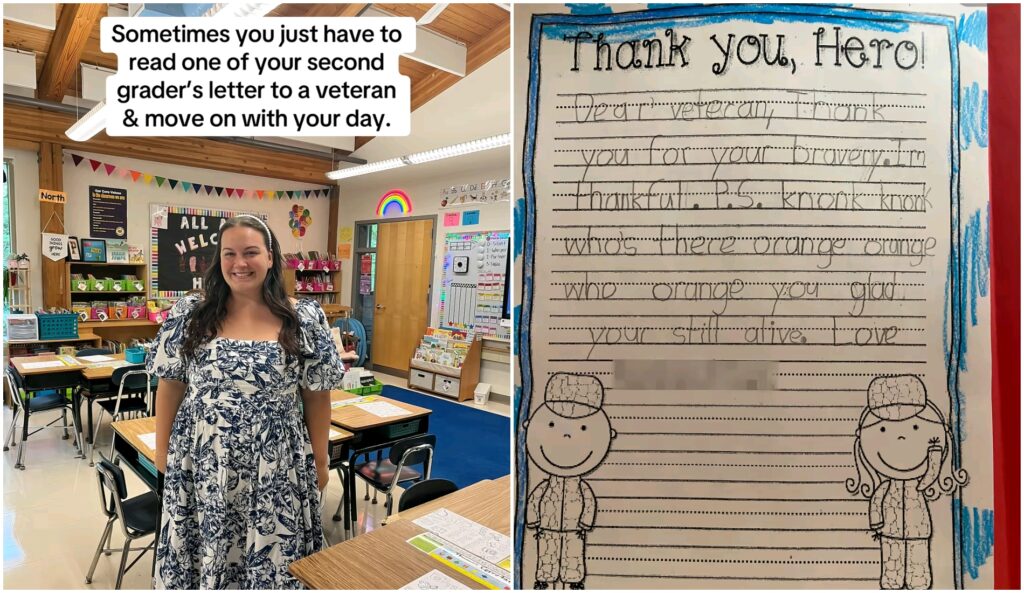 Sometimes you just have to
read one of your second
grader's letter to a veteran
& move on with your day.
North
ALL A
WELC
H
Thank you, Hero!
Dear veteran, Thank
you for your bravery. Im
thankful. P.S. knonk knonk
who's there orange orange
who orange you glad
your still alive. Love